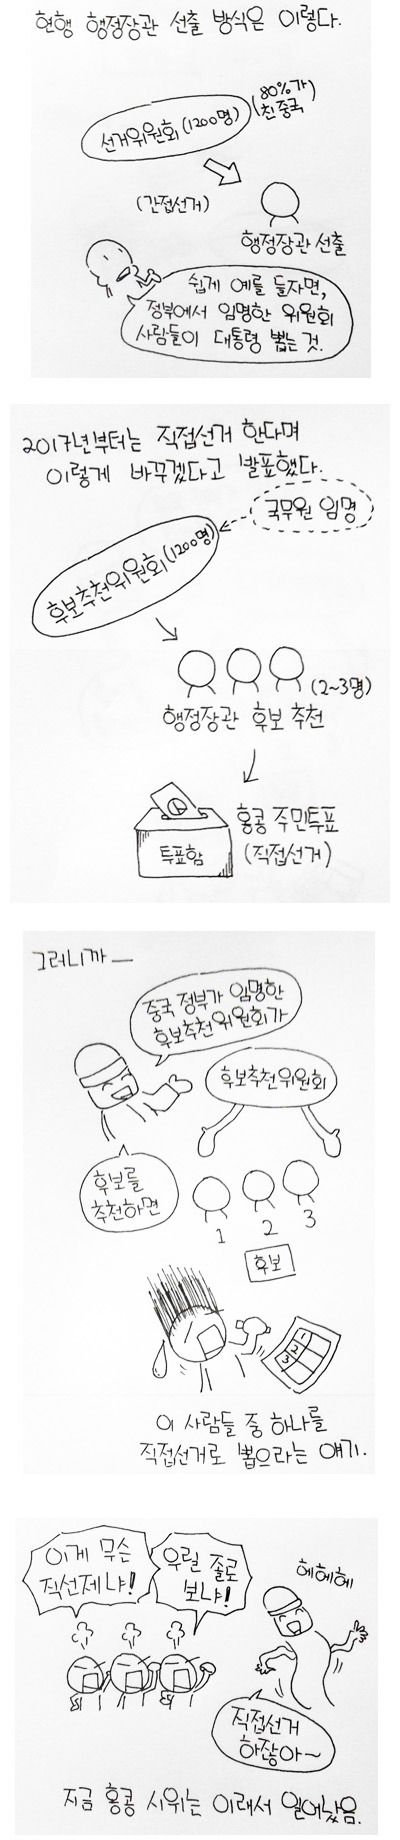 현행 행정장관 선출 방식은 이렇다.
선거위원회(1200명)
(80%가
친중국)
(간접선거)
행정장관 선출
쉽게 예를 들자면,
정부에서 임명한 위원회
사람들이 대통령 뽑는 것.
2017년부터는 직접선거 한다며
이렇게 바꾸겠다고 발표했다.
국무원 임명
후보추천위원회(1200명)
(2~3명)
행정장관 후보 추천
투표함
홍콩 주민투표
(직접선거)
그러니까 —
중국 정부가 임명한
후보추천위원회가
후보추천위원회
후보를
추천하면
1 2 3
후보
1
2
3
이 사람들 중 하나를
직접선거로 뽑으라는 얘기.
이게 무슨
직선제냐!
우릴 졸로
보냐!
헤헤헤
직접선거
하잖아~
지금 홍콩 시위는 이래서 일어났음.